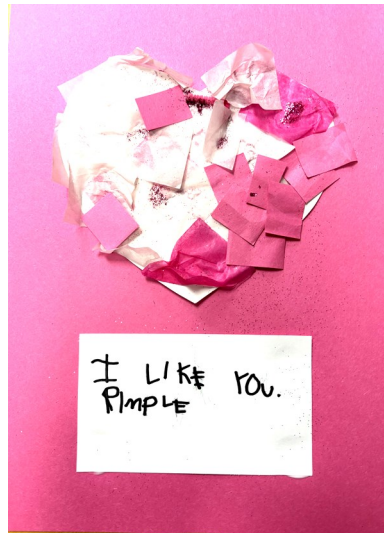 I LIKE YOU.
PIMPLE